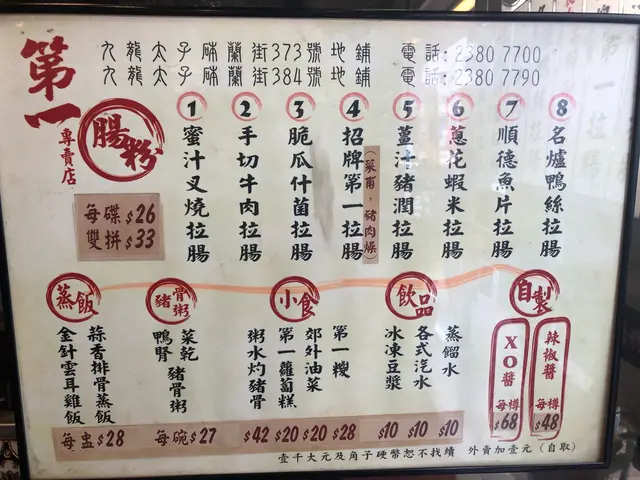 第一
腸粉
專賣店
九龍太子砵蘭街373號地鋪 電話:2380 7700
九龍太子砵蘭街384號地鋪 電話:2380 7790
每碟$26
雙拼$33
1 蜜汁叉燒拉腸
2 手切牛肉拉腸
3 脆瓜什菌拉腸
4 招牌第一拉腸
(菜甫,豬肉燥)
5 薑汁豬潤拉腸
6 蔥花蝦米拉腸
7 順德魚片拉腸
8 名爐鴨絲拉腸
蒸飯
金針雲耳雞飯
蒜香排骨蒸飯
每盅$28
豬骨粥
鴨腎菜乾豬骨粥
每碗$27
小食
粥水灼豬骨 $42
第一蘿蔔糕 $20
郊外油菜 $20
第一糉 $28
飲品
冰凍豆漿 $10
各式汽水 $10
蒸餾水 $10
自製
XO醬 每樽 $68
辣椒醬 每樽 $48
壹千大元及角子硬幣恕不找續 外賣加壹元(自取)